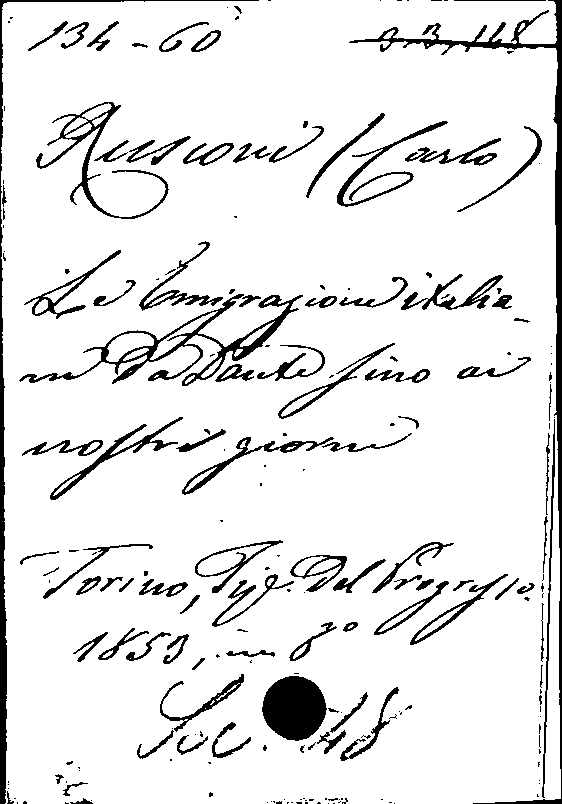 134-60 3,3,148
Rusconi (Carlo)
Le Emigrazioni italia-
ne da Dante fino ai
nostri giorni
Torino, Tip. Del Progresso.
1853, in 8º
Soc. 48